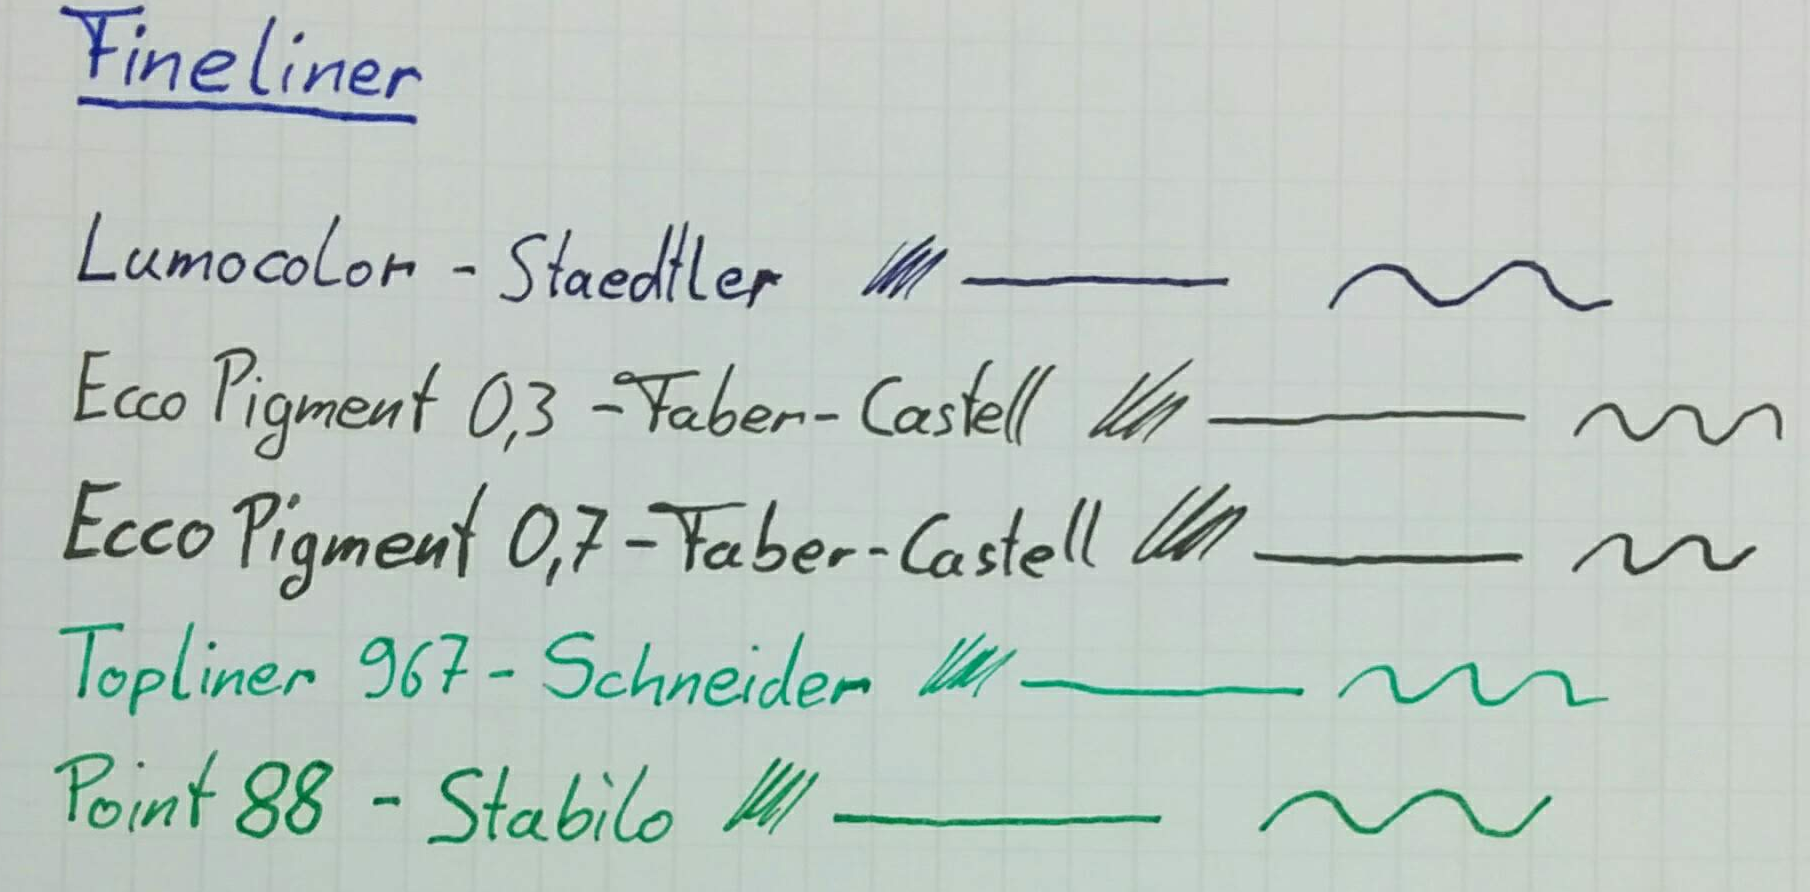 Fineliner
Lumocolor - Staedtler
Ecco Pigment 0,3 - Faber-Castell
Ecco Pigment 0,7 - Faber-Castell
Topliner 967 - Schneider
Point 88 - Stabilo